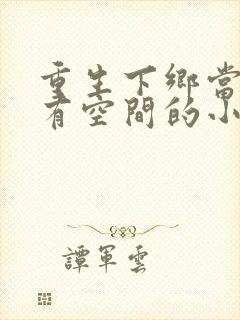 重生下鄉當
有空間的小
譚軍雲